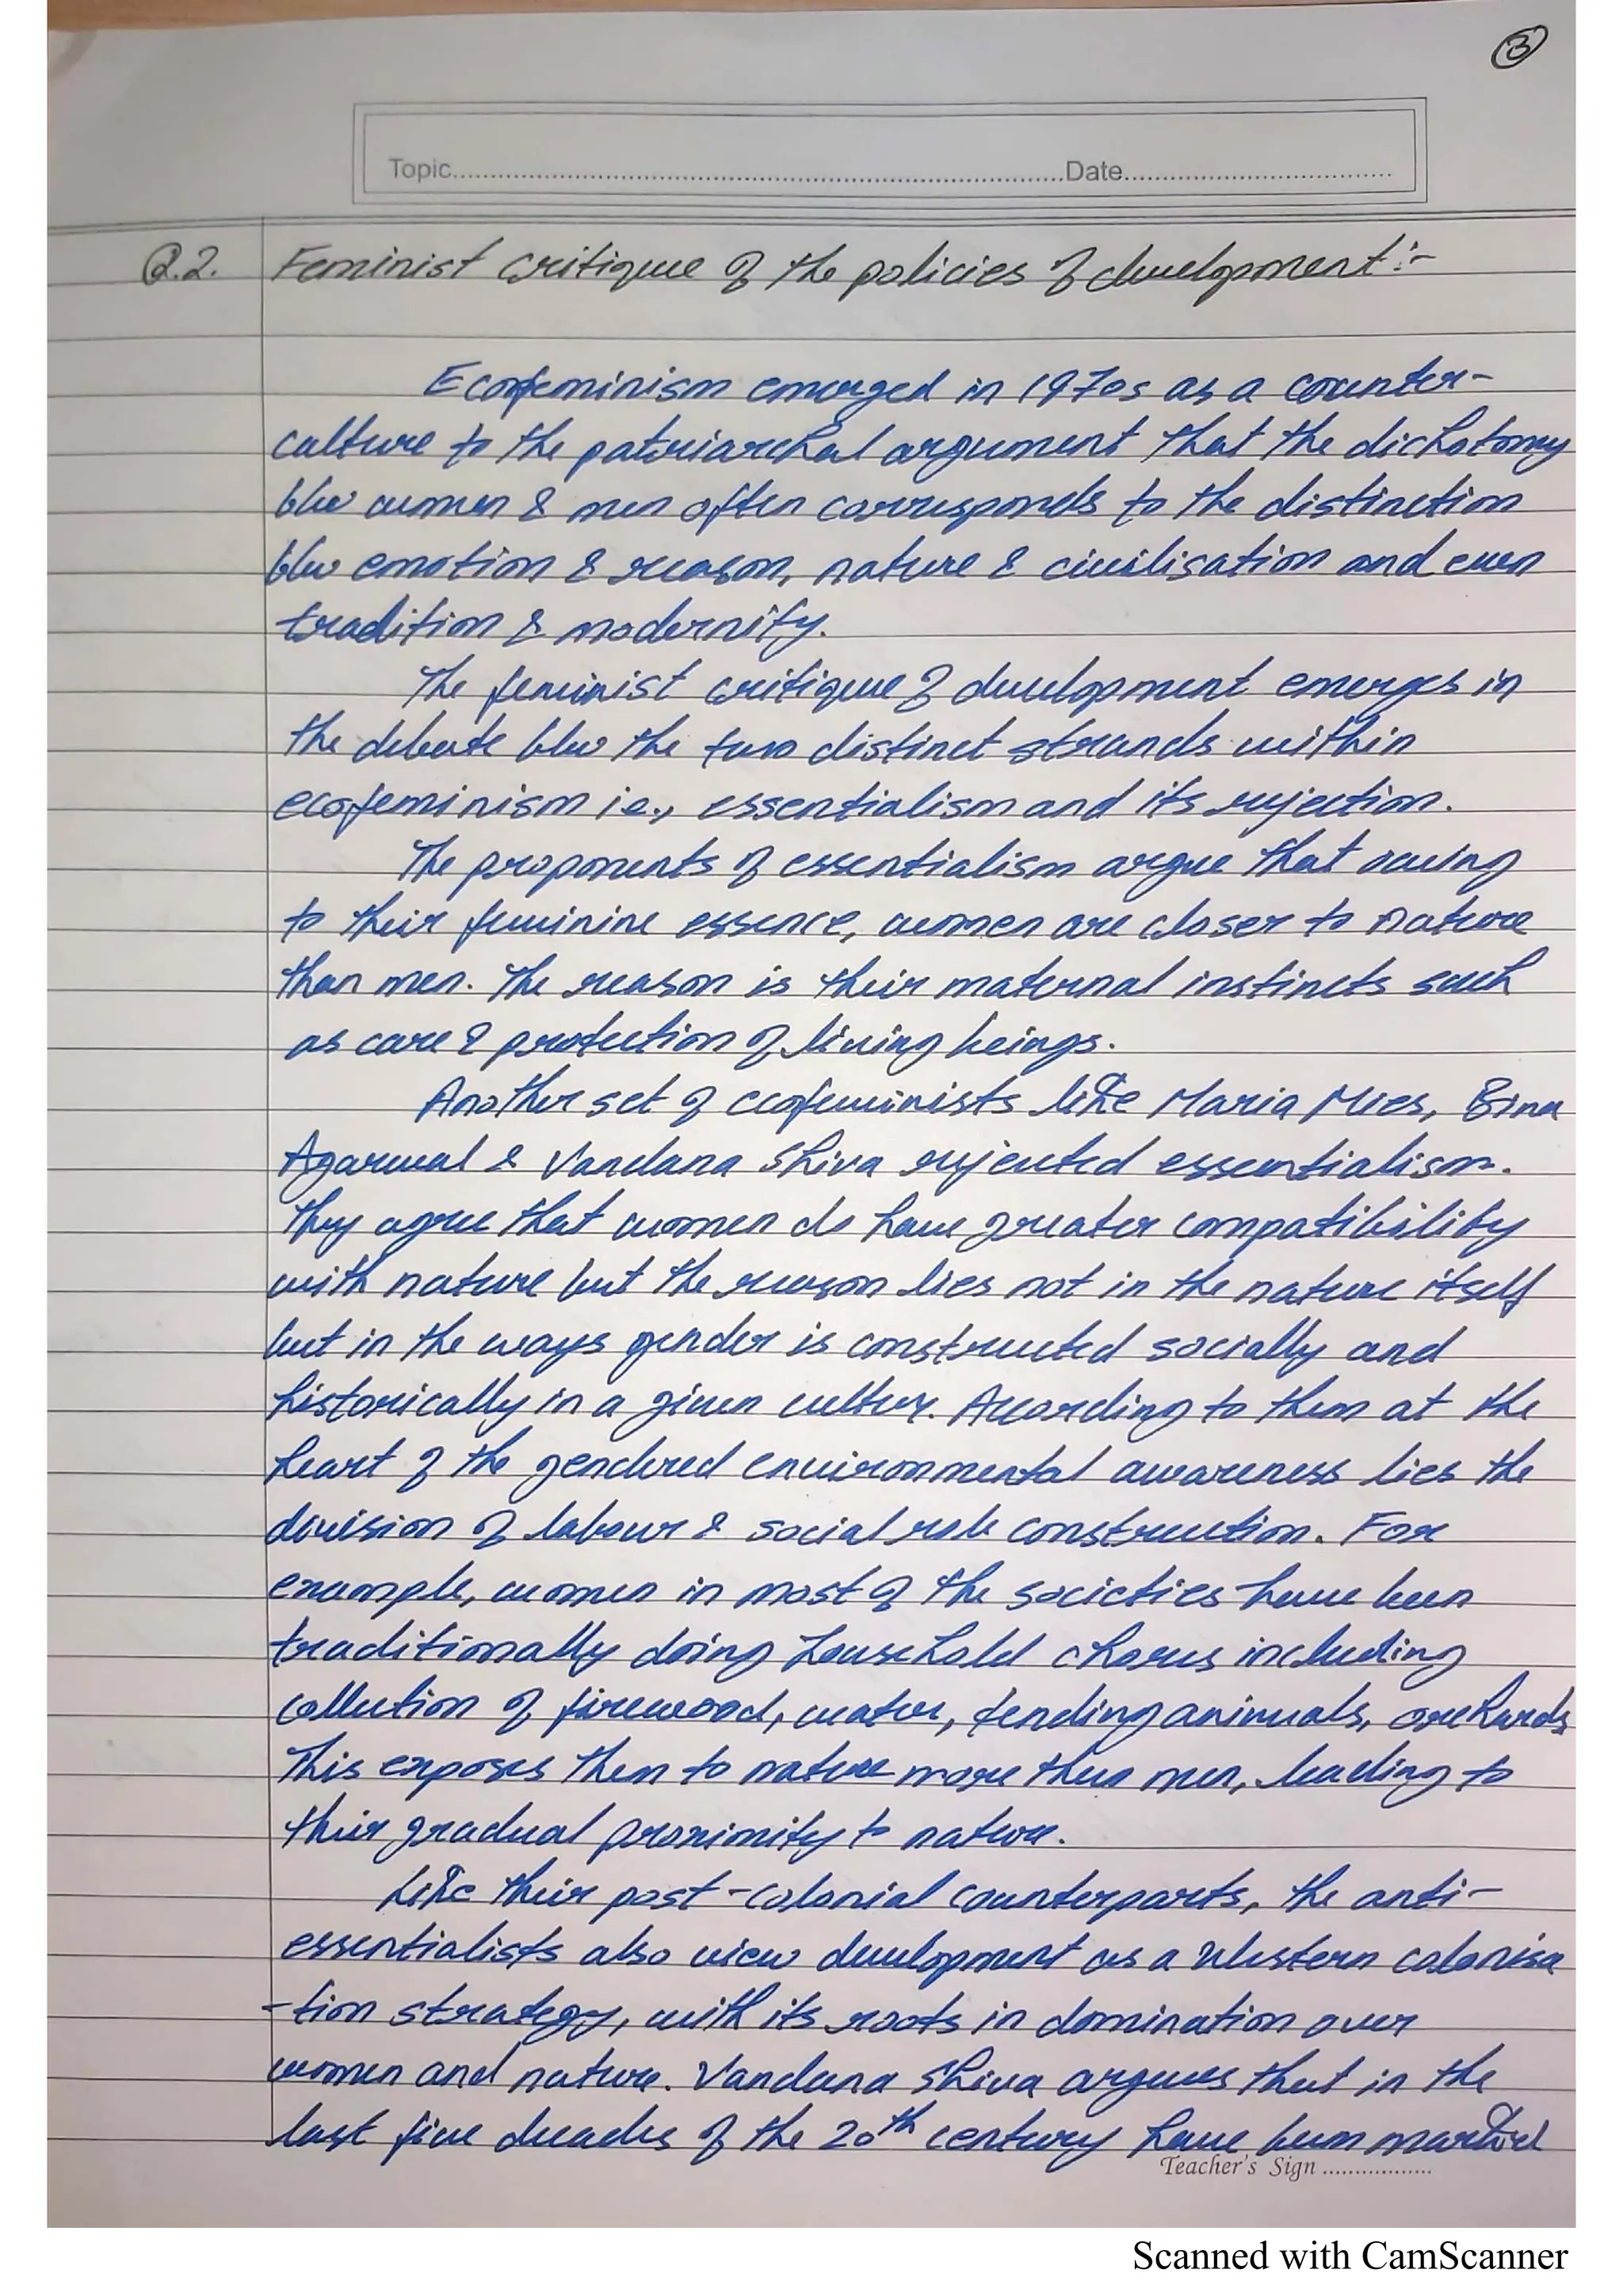 3
Topic Date
Q.2. Feminist critique of the policies of development :-
Ecofeminism emerged in 1970s as a counter-
culture to the patriarchal argument that the dichotomy
b/w women & men often corresponds to the distinction
b/w emotion & reason, nature & civilisation and even
tradition & modernity.
The feminist critique of development emerges in
the debate b/w the two distinct strands within
ecofeminism i.e., essentialism and its rejection.
The proponents of essentialism argue that owing
to their feminine essence, women are closer to nature
than men. The reason is their maternal instincts such
as care & protection of living beings.
Another set of ecofeminists like Maria Mies, Bina
Agarwal & Vandana Shiva rejected essentialism.
They agree that women do have greater compatibility
with nature but the reason lies not in the nature itself
but in the ways gender is constructed socially and
historically in a given culture. According to them at the
heart of the gendered environmental awareness lies the
division of labour & social role construction. For
example, women in most of the societies have been
traditionally doing household chores including
collection of firewood, water, tending animals, orchards
This exposes them to nature more than men, leading to
their gradual proximity to nature.
Like their post-colonial counterparts, the anti-
essentialists also view development as a Western colonisa
-tion strategy, with its roots in domination over
women and nature. Vandana Shiva argues that in the
last five decades of the 20th century have been marked
Teacher's Sign
Scanned with CamScanner